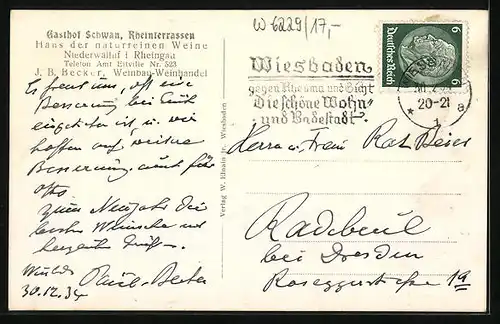 Gasthof Schwan, Rheinterrassen
Haus der naturreinen Weine
Niederwalluf i Rheingau
Telefon Amt Eltville Nr. 523
J. B. Becker, Weinbau-Weinhandel
Es freut uns, daß eine
Besserung bei Euch
eingetreten ist u. wir
hoffen auf weitere
Besserung auch für
Zum Neujahr die
besten Wünsche und
herzliche Grüße.
30.12.34
Verlag W. Rhnain jr. Wiesbaden
W 6229/17,-
Wiesbaden
gegen Rheuma und Gicht
Die schöne Wohn-
und Badestadt.
20-21
* 1 a
6 6
Deutsches Reich
Herrn u. Frau Rat Beier
Radebeul
bei Dresden
Roseggerstraße 19